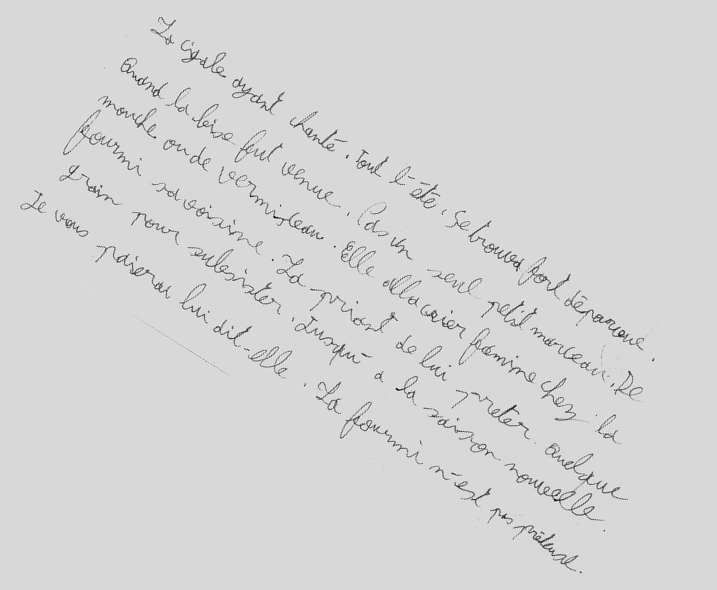 La cigale ayant chanté. Tout l'été. Se trouva fort dépourvue.
Quand la bise fut venue. Pas un seul petit morceau. De
mouche ou de vermisseau. Elle alla crier famine chez la
fourmi sa voisine. La priant de lui prêter quelque
grain pour subsister. Jusqu'à la saison nouvelle.
Je vous paierai lui dit-elle. La fourmi n'est pas prêteuse.